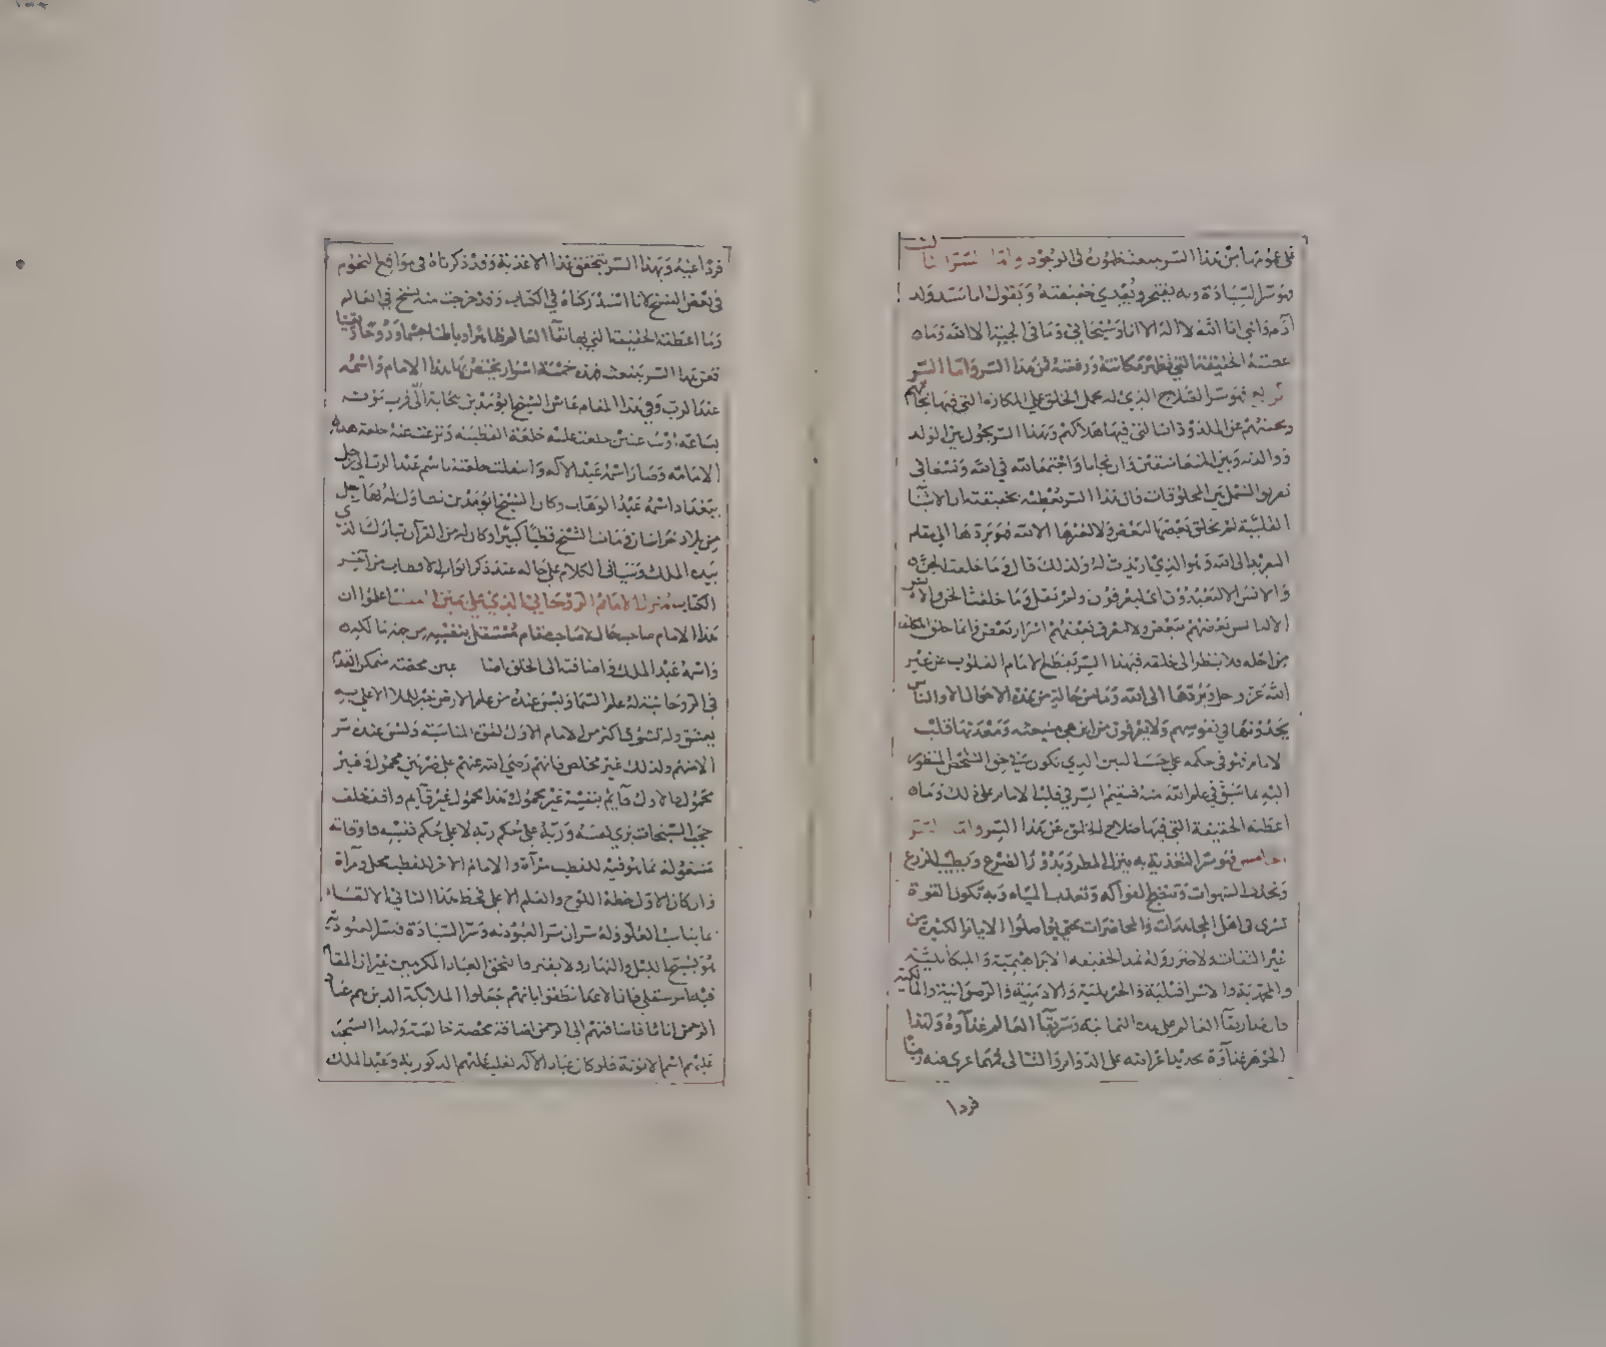 على عمومها من هذا السر ينبعث فظهورها في الوجود واما السر الثالث
فهو سر السيادة وبه يفتخر ويبدي حقيقته ويقول انا سيد ولد
آدم واني انا الله لا اله الا انا وسبحاني وما في الجبة الا الله وما
عطته الحقيقة التي تظهر مكانته ورفعته فمن هذا السر واما السر
الرابع فهو سر الصلاح الذي له يحمل الخلق على المكاره التي فيها نجاتهم
ويحميهم عن الملذوذات التي فيها هلاكهم وبهذا السر يحول بين الولد
ووالدته وبين المتعاشقين وان تحابا واجتمعا لله في الله وتسعا في
تفريق الشمل بين المخلوقات فان هذا السر يعطيه بحقيقته ان الاشيا
القلبية لم تخلق بعضها لبعض ولا لغيرها الا لله فهو يردها الى مقام
التفريد الى الله وهو الذي اريدت له ولذلك قال وما خلقت الجن
والانس الا ليعبدون اي ليعرفون ولم يقل وما خلقت الجن والانس
الا لياتنس بعضهم ببعض ولا ليعرف بعضهم اسرار بعض وانما خلق المكلف
من اجله فلا ينظر الى خلقه فبهذا السر يقطع الامام القلوب عن غير
الله عز وجل ويردها الى الله وما من حالة من هذه الاحوال الا والناس
يجدونها في نفوسهم ولا يعرفون من اين هي منبعثه ومعدنها قلب
الامام فهو في حكمه على حسب السبب الذي يكون في حق الشخص المنظور
اليه بما سبق في علم الله منه فيقيم السر في قلب الامام على ذلك وما
اعطته الحقيقة التي فيها صلاح الخلق عن هذا السر واما السر
الخامس فهو سر التغذية به ينزل المطر ويدر الضرع ويطيب الزرع
وتحدث الشهوات وتنضج الفواكه وتعذب المياه وبه تكون القوة
تسري في اهل المجاهدات والمحاضرات حتى يواصلوا الايام الكثيرة من
غير التفات ولا ضرر وله تمد الحقيقة الابراهيمية والميكائيلية
والمحمدية والاسرافيلية والجبريلية والادمية والرضوانية والمالكية
فان مدار بقا العالم على هذه الثمانية وسر بقا العالم غذاؤه ولهذا
الجوهر غذاؤه تجديد اعراضه على الدوام والتتالي فمهما عري عنه زمنا
فردا
فردا عينه وبهذا السر يتحقق هذا الاغذية وقد ذكرناه في مواقع النجوم
في بعض النسخ لانا استدركناه في الكتاب وقد خرجت منه نسخ في العالم
وما اعطته الحقيقة التي بها بقا العالم ظاهرا وباطنا جسما وروحا ونفسا
فعن هذا السر ينبعث فهذه خمسة اسرار يختص بها هذا الامام واسمه
عبد الرب وفي هذا المقام عاش الشيخ ابو مدين ببجاية الى قرب موته
بساعة او ساعتين خلعت عليه خلعة القطبية ونزعت عنه خلعة هذه
الامامة وصار اسمه عبد الاله وانتقلت خلعته باسم عبد الرب الى رجل
ببغداد اسمه عبد الوهاب وكان الشيخ ابو مدين تطاول لها رجل
من بلاد خراسان ومات الشيخ قطبا كبيرا وكان له من القرآن تبارك الذي
بيده الملك وسياتى الكلام على حاله عند ذكر ابواب الاقطاب من آخر
الكتاب منزل الامام الروحاني الذي على يمين القطب اعلموا ان
هذا الامام صاحب حال لا صاحب مقام مشتغل بنفسه من جهة مالكه
واسمه عبد الملك واضافته الى الخلق اضافة غير محضة متمكن القدم
في الروحانية له علم السما وليس عنده من علم الارض خبر للملا الاعلى به
تعشق وله تشوق اكثر من الامام الاول لتفوق المناسبة وليس عنده سر
الا منهم ولذلك غير مخلص فانهم رضي الله عنهم على ضربين محمول وغير
محمول فالاول قايم بنفسه غير محمول هذا محمول غير قايم واقف خلف
حجب السبحات يرى نفسه وربه على حكم ربه لا على حكم نفسه فاوقاته
مشغولة بما هو فيه للقطب مرآة والامام الآخر للقطب محل ومرآة
وان كان الاول حظه اللوح والقلم الاعلى فحظ هذا الثاني الالقا
بما يناسب العلو وله سران سر العبودية وسر السيادة فبسر العبودية
هو يسبح الليل والنهار ولا يفتر والتحق العباد المكرمين غير ان المقام
الرحمن اناثا فاضافتهم الى الرحمن اضافة محضة خالصة ولهذا السجد
عليهم اسم الانوثة فلو كان عباد الاله لغلب عليهم الذكورية وعبد الملك